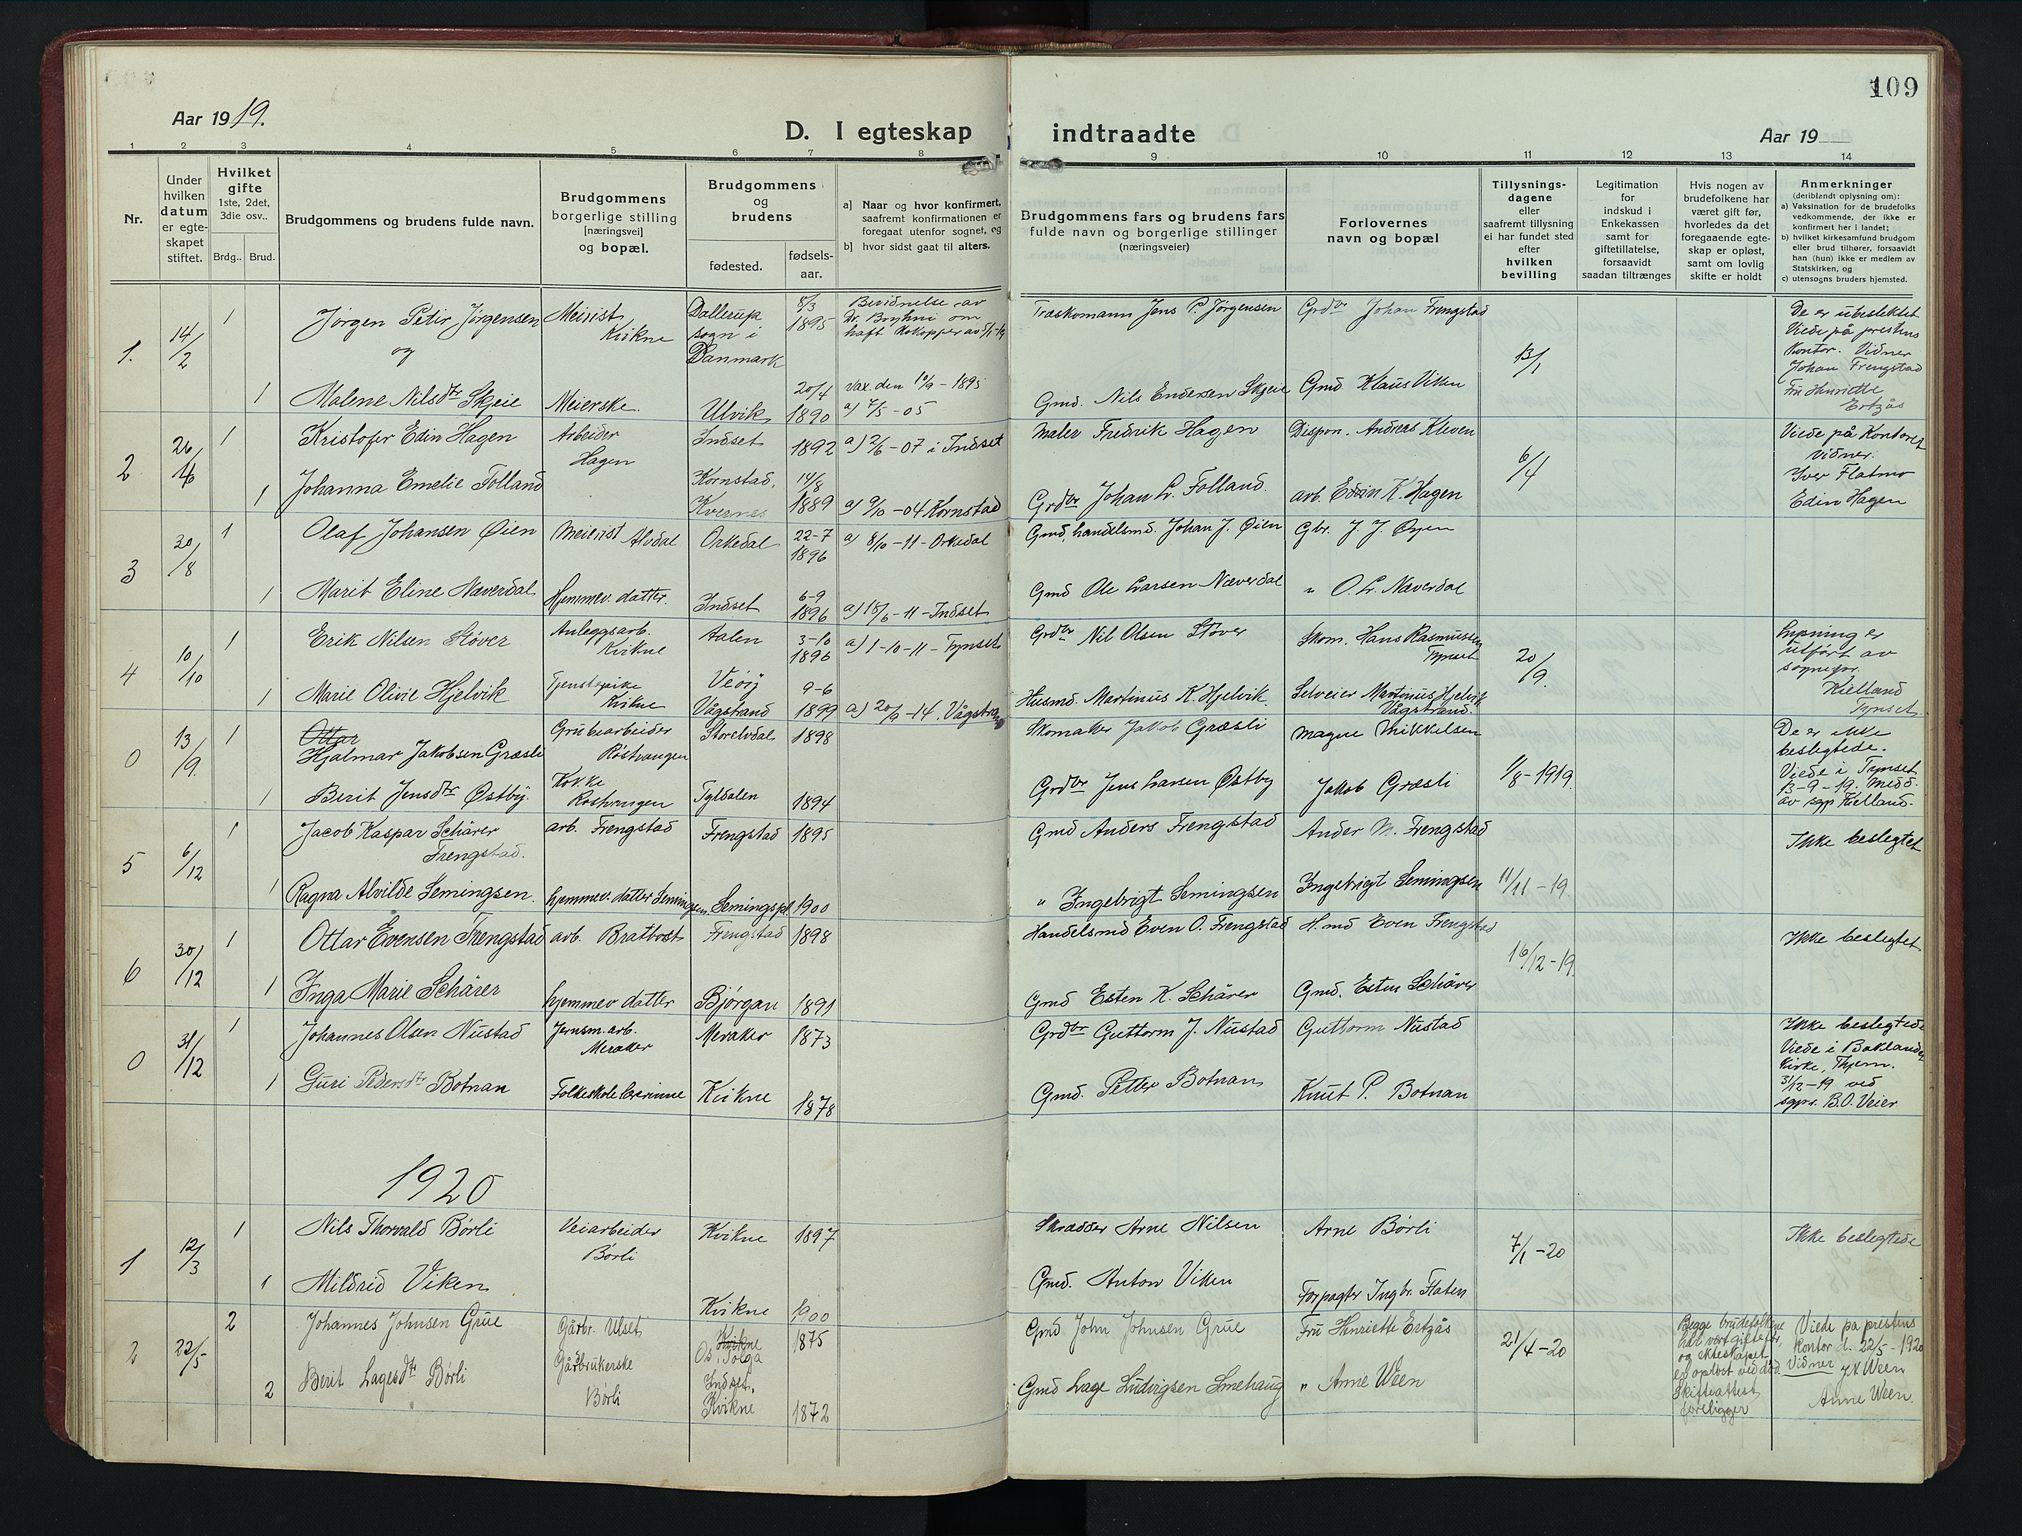 109
Aar 1919.
D. I egteskap indtraadte
Aar 19
1 2 3 4 5 6 7 8 9 10 11 12 13 14
Nr.
Under hvilken datum er egteskapet stiftet.
Hvilket gifte 1ste, 2det, 3die osv..
Brdg.. Brud.
Brudgommens og brudens fulde navn.
Brudgommens borgerlige stilling [næringsvei] og bopæl.
Brudgommens og brudens
fødested. fødselsaar.
a) Naar og hvor konfirmert, saafremt konfirmationen er foregaat utenfor sognet, og
b) hvor sidst gaat til alters.
Brudgommens fars og brudens fars fulde navn og borgerlige stillinger (næringsveier)
Forlovernes navn og bopæl
Tillysningsdagene eller saafremt tillysning ei har fundet sted efter hvilken bevilling
Legitimation for indskud i Enkekassen samt for giftetillatelse, forsaavidt saadan tiltrænges
Hvis nogen av brudefolkene har været gift før, hvorledes da det foregaaende egteskap er opløst, samt om lovlig skifte er holdt
Anmerkninger (deriblandt oplysning om):
a) Vaksination for de brudefolks vedkommende, der ikke er konfirmert her i landet;
b) hvilket kirkesamfund brudgom eller brud tilhører, forsaavidt han (hun) ikke er medlem av Statskirken, og
c) utensogns bruders hjemsted.
1. 14/2 1 Jörgen Petir Jörgensen Meirist Kvikne Dallerup sogn i Danmark 8/3 1895 Bevidnelse av Dr. Bryhni om haft kokopper av 5/1-19 Træskomann Jens P. Jörgensen Grdbr Johan Frengstad 13/1 De er ubeslektet Viede på prestens Kontor. Vidner Johan Frengstad Fru Henriette Ertzås
og
1 Malene Nilsdtr Skjeie Meierske. Ulvik 20/4 1890 Vax. den 10/9-1895 a) 7/5-05 Gmd. Nils Endersen Skjeie Gmd Klaus Viken
2 26/4 1 Kristofer Edin Hagen Arbeider Hagen Indset 1892 a) 2/6-07 i Indset Maler Fredrik Hagen Dispon. Andreas Kleven 6/4 Viede på Kontoret Vidner: Iver Flatmo Edin Hagen
1 Johanna Emelie Folland Kornstad, Kvernes 14/8 1889 a) 9/10-04 Kornstad Grdbr Johan Lr. Folland. arb. Edin K. Hagen
3 30/8 1 Olaf Johansen Öien Meierist Alvdal Orkedal 22-7 1896 a) 8/10-11-Orkedal Gmd, handelsmd. Johan J. Öien Gbr. J. J. Öyen
1 Marit Eline Næverdal Hjemmev. datter. Indset 6-9 1896 a) 18/6-11-Indset Gmd Ole Larsen Næverdal " O. Lr. Næverdal
4 10/10 1 Erik Nilsen Stöver Anleggsarb. Kvikne Aalen 3-10 1896 a) 1-10-11-Tynset Grdbr Nil Olsen Stöver Skom. Hans Rasmussen Tynset 20/9. Lysning er utfört av sognepr. Kielland Tynset.
1 Marie Olivie Hjelvik Tjenstepike Kvikne Veöy Vågstrand 9-6 1899 a) 20/9-14, Vågstrand Husmd. Martinus K. Hjelvik Selveier Martinus Hjelvik Vågstrand.
0 13/9. 1 Ottar Hjalmar Jakobsen Græsli Grubearbeider Röstvangen Storelvdal 1898 Skomaker Jakob Græsli Magne Mikkelsen 1/8-1919. De er ikke beslegtede. Viede i Tynset 13-9-19. Medd. av sgp Kielland.
1 Berit Jensdtr Östby. Kokke Röstvangen Tyldalen 1894 Grdbr Jens Larsen Östby Jakob Græsli
5 6/12 1 Jacob Kaspar Schärer Frengstad. arb. Frengstad Frengstad 1895 Gmd Anders Frengstad Ander M. Frengstad 11/11-19. Ikke beslegtet
1 Ragna Alvilde Semingsen. hjemmev. datter Semingspl. Semingspl 1900 " Ingebrigt Semingsen Ingebrigt Semingsen
6 30/12 1 Ottar Evensen Frengstad arb. Brattvost Frengstad 1898 Handelsmd Even O. Frengstad H.md Even Frengstad 16/12-19. Ikke beslegtet
1 Inga Marie Schärer hjemmev datter Björgan 1891 Gmd Esten K. Schärer Gmd. Esten Schärer
0 31/12 1 Johannes Olsen Nustad Jernsm. arb. Meraker Meraker 1873 Grdbr Guttorm J. Nustad Guttorm Nustad Ikke beslegtede Viede i Baklandes Kirke, Thjem. 31/12-19 ved sgpr. B.O. Veier
1 Guri Pedersdtr Botnan Folkeskolelærerinne Kvikne 1878 Gmd. Petter Botnan Knut P. Botnan
1920
1 12/3 1 Nils Thorvald Börli Veiarbeider Börli Kvikne 1897 Skrædder Arne Nilsen Arne Börli 7/1-20 Ikke beslegtede
1 Mildrid Viken Kvikne 1900 Gmd. Anton Viken Forpagter Ingbr. Flaten
2 22/5 2 Johannes Johnsen Grue Gårbr. Ulset Kvikne Os, Tolga 1875 Gmd John Johnsen Grue Fru Henriette Ertzås 21/4-20 Begge brudefolkene har vært gift før, og ekteskapet er opløst ved død. Skifteattest foreligger Viede på prestens kontor d. 22/5-1920 Vidner Weën Anne Weën.
2 Berit Lagesdtr Börli Gårdbrukerske Börli Indset, Kvikne 1872 Gmd Lage Ludvigsen Smehaug " Anne Weën